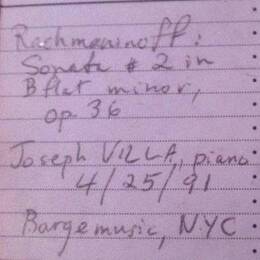 Rachmaninoff:
Sonata # 2 in
B flat minor,
op 36
Joseph VILLA, piano
4/25/91
Bargemusic, NYC